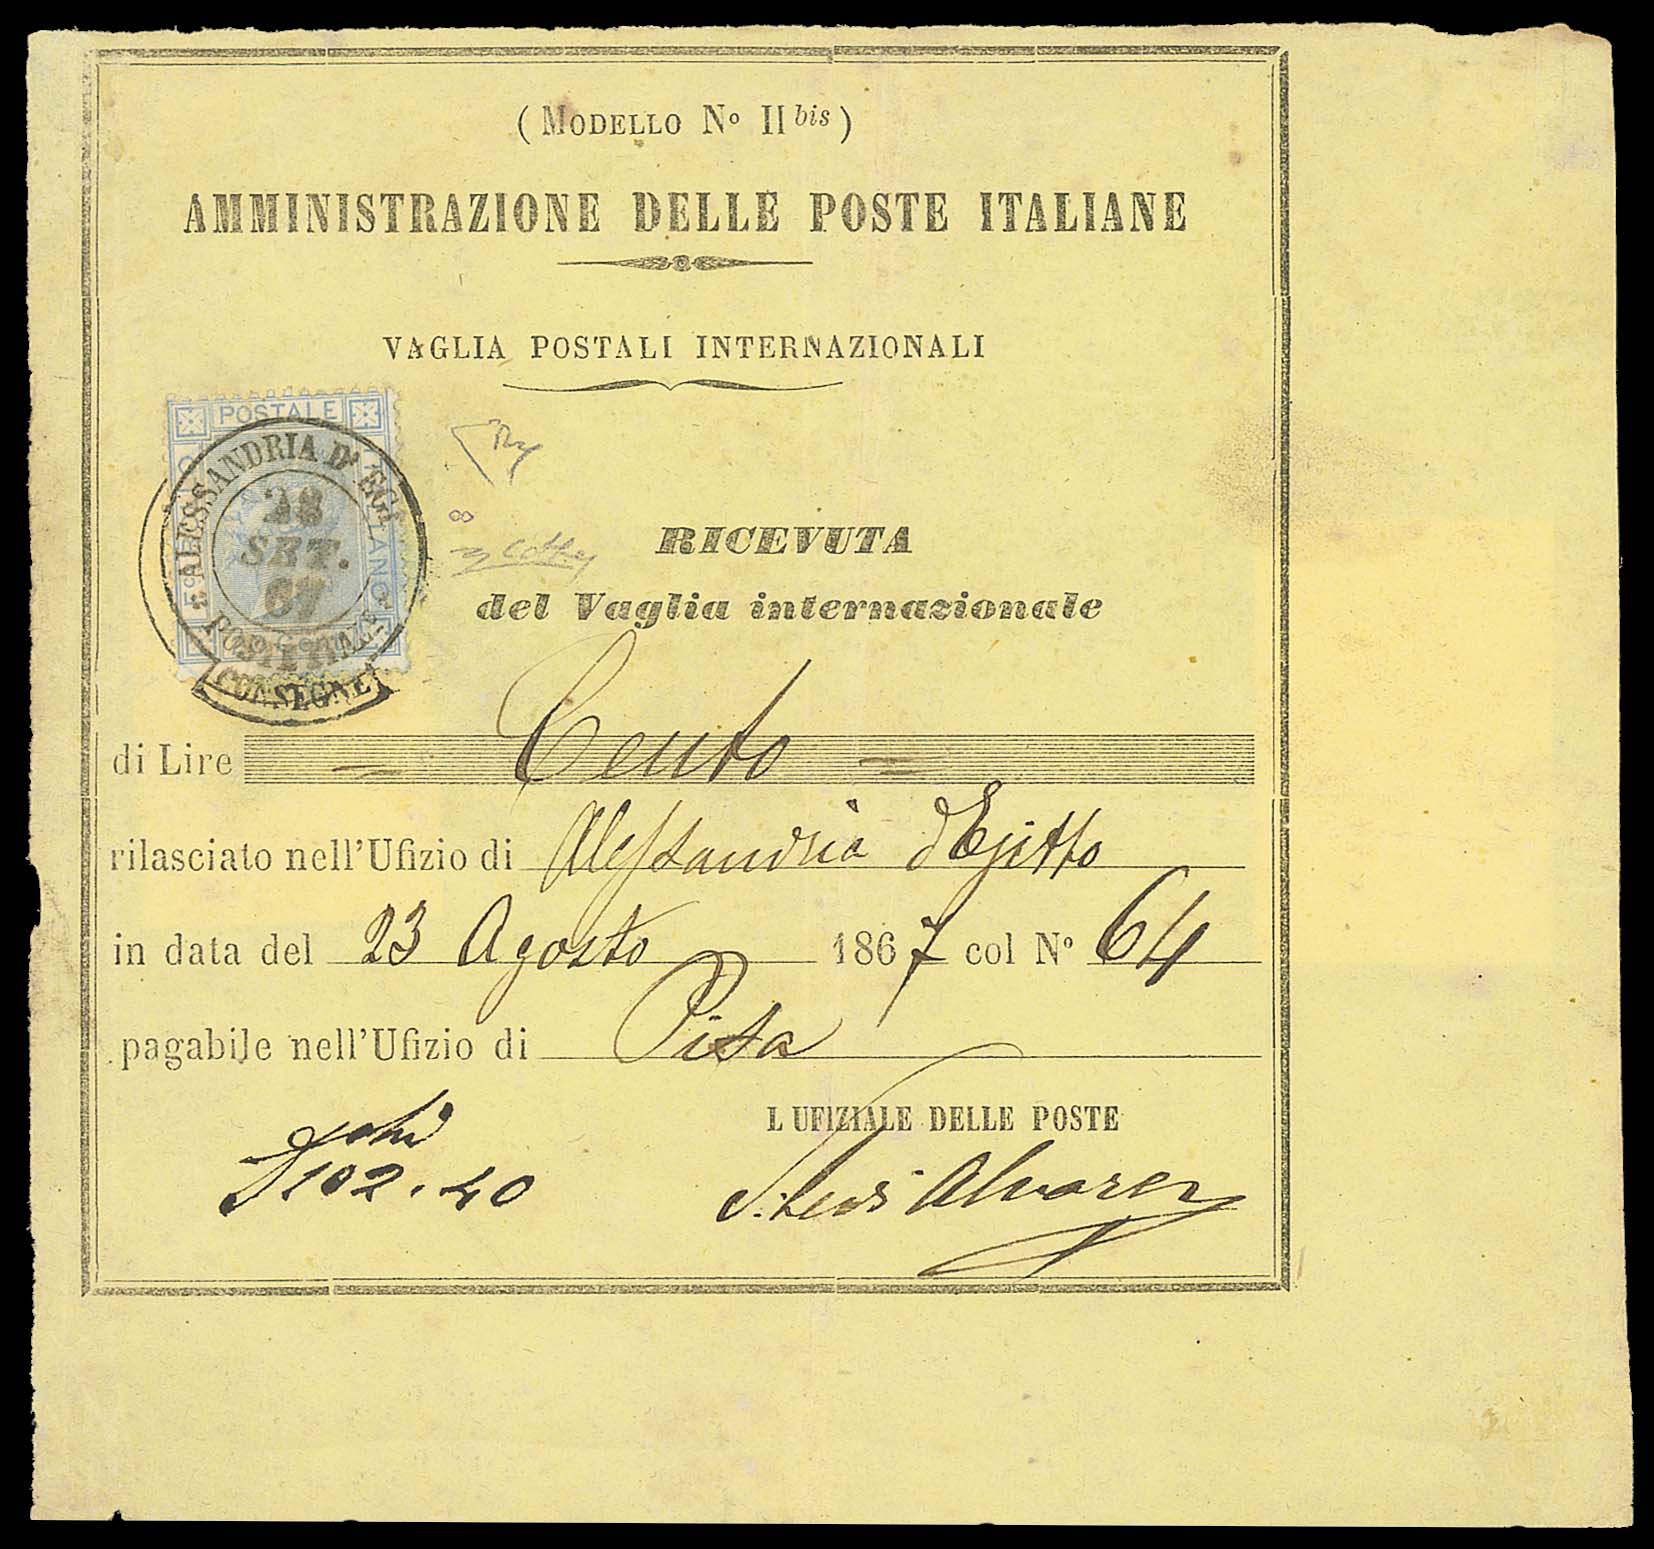 ( Modello Nº II bis )
AMMINISTRAZIONE DELLE POSTE ITALIANE
VAGLIA POSTALI INTERNAZIONALI
POSTALE
ALESSANDRIA D' EG.
28
SET.
67
POSTE ITALIANE
CONSEGNE
RICEVUTA
del Vaglia internazionale
di Lire = Cento =
rilasciato nell'Ufizio di Alessandria d'Egitto
in data del 23 Agosto 1867 col Nº 64
pagabile nell'Ufizio di Pisa
L UFIZIALE DELLE POSTE
102.40
Alvarez